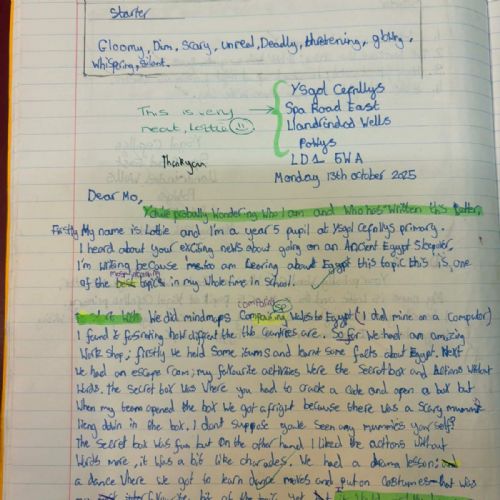 Starter
Gloomy, Dim, Scary, unreal, Deadly, thretening,
whispring, silent.
Ysgol Cefnllys
Spa Road East
Llandrindod Wells
Powys
LD1 5WA
This is very
neat, Lottie
Thankyou
Monday 13th october 2025
Dear Mo,
You're probably wondering who I am and who has written this letter.
Firstly My name is Lottie and I'm a year 5 pupil at Ysgol Cefnllys primary.
I heard about your exciting news about going on an Ancient Egypt
I'm writing because too am learing about Egypt this topic this is, one
of the best topics in my whole time in School.
comparing sp
We did mindmaps Wales to Egypt (I did mine on a computer)
I found it how diffrent the countries are. So far we had an amazing
Work shop; firstly we held some and learnt some facts about Egypt. Next
We had an escape room; my favourite activities were the Secret box and Actions without
Words. the secret box was where you had to crack a code and open a box but
When my team opened the box we got a fright because there was a scary mummy
lieng down in the box. I dont suppose you've seen any mummies yourself?
The secret box was fun but on the other hand I liked the actions without
Words more, it was a bit like charades. We had a drama lesson;
a dance where we got to learn dance moves and put on costumes that was